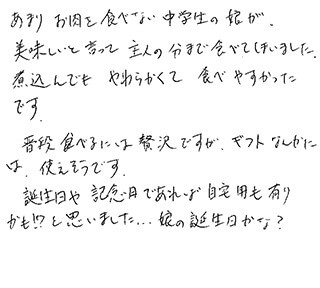 あまり お肉を食べない中学生の娘が、
美味しいと言って 主人の分まで食べてしまいました。
煮込んでも やわらかくて 食べやすかった
です。
普段食べるには贅沢ですが、ギフトなんかに
は、使えそうです。
誕生日や 記念日であれば 自宅用も有り
かも!?と思いました… 娘の誕生日かな?